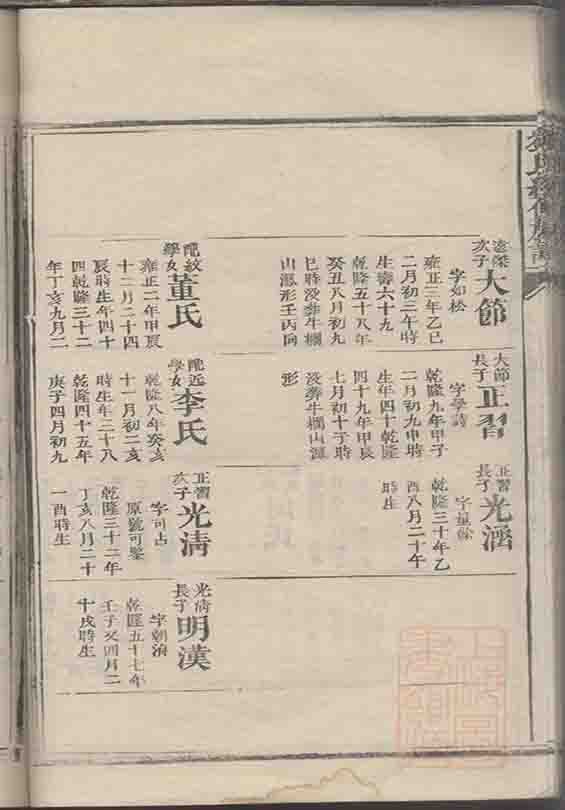 遠傑
次子
大節
字如松
雍正三年乙巳
二月初二午時
生壽六十九
乾隆五十八年
癸丑八月初九
巳時没葬牛欄
山源形壬丙向
配紋
學女
董氏
雍正二年甲辰
十二月二十四
辰時生年四十
四乾隆三十二
年丁亥九月二
大節
長子
正習
字學詩
乾隆九年甲子
二月初九申時
生年四十乾隆
四十九年甲辰
七月初十子時
没葬牛欄山源
形
配近
學女
李氏
乾隆八年癸亥
十一月初二亥
時生年三十八
乾隆四十五年
庚子四月初九
正習
長子
光涵
字量餘
乾隆三十年乙
酉八月二十午
時生
正習
次子
光清
字可占
原號可鑒
乾隆三十二年
丁亥八月二十
一酉時生
光清
長子
明漢
字朝
乾隆五十七年
壬子又四月二
十戌時生